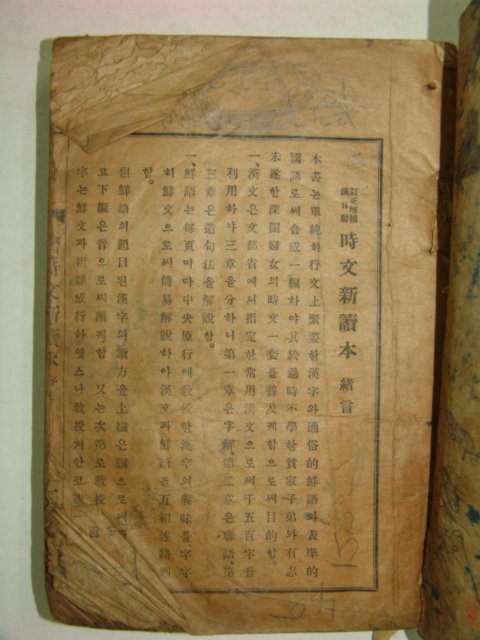 訂正增補
漢日鮮
時文新讀本 緖言
本書는單純히行文上緊要한漢字와通俗的鮮語와表準的
國語로써合成一編하야其於過時不學한貧家子弟와有志
未遂한深閨婦女의時文一套를普及케함으로써目的함。
一、漢文은文部省에서指定한常用漢文으로써千五百字를
利用하야三章을分하니第一章은字解、第二章은聯語、第
三章은造句法을解說함。
一、鮮語는每頁마다中央原行에敎授한漢字의義味를字字
히鮮文으로써簡易解說하야漢文과鮮語를互相連絡케
함。
但鮮語의題目된漢字의讀方을上圈은訓으로써
고下圈은音으로써讀케함 又는次第로敎授
字는鮮文과相並原行하엿스나敎授치안코